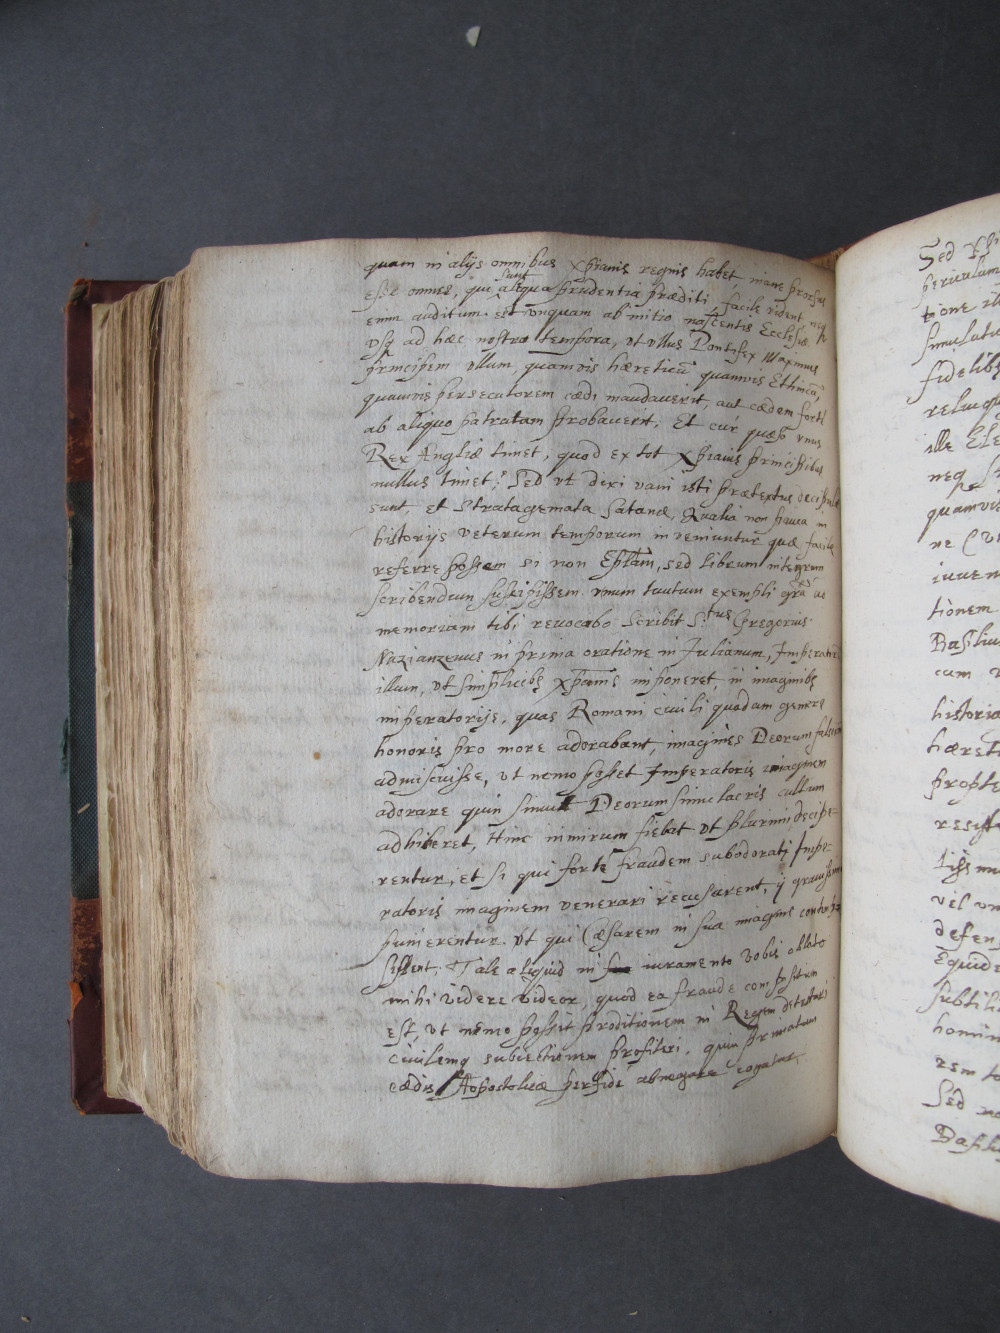 quam in alijs omnibus Xp̄ianis regnis habet, inane prorsus
esse omnes, qui sunt aliqua prudentia præditi, facile vident, neq
enim auditum est unquam ab initio nascentis Ecclesiæ
usq ad hæc nostra tempora, ut ullus Pontifex Maximus
principem ullum, quamvis hæreticū quamvis Ethnicū,
quamvis persecutorem cædi mandaverit, aut cædem forte
ab aliquo patratam probaverit. Et cur quæso unus
Rex Angliæ timet, quod ex tot Xp̄ianis principibus
nullus timet? Sed ut dixi vani isti prætextus decipulæ
sunt et stratagemata Satanæ, Qualia non pauca in
historijs veterum temporum inveniuntur quæ facile
referre possem si non Ep̄lam, sed librum integrum
scribendum suscepissem. unum tantum exempli grā ad
memoriam tibi revocabo. Scribit S.tus Gregorius
Nazianzenus in prima oratione in Julianum, Imperatorē
illum, ut simplicibs xp̄ianis imponeret, in imaginibs
imperatorijs, quas Romani civili quodam genere
honoris pro more adorabant, imagines Deorum falsorum
admiscuisse, ut nemo posset Imperatoris imaginem
adorare quin simul Deorum simulacris cultum
adhiberet, Hinc nimirum fiebat ut plurimi decipe-
rentur, et si qui forte fraudem subodorati Impe-
ratoris imaginem venerari recusarent, ij gravissime
punirentur. ut qui Cæsarem in sua imagine contempsis-
sent. Tale aliquid in iuramento vobis oblato
mihi videre videor, quod ea fraude compositum
est, ut nemo possit proditionem in Regem detestari
Civilemq subiectionem profiteri, quin primatum
Sedis Apostolicæ perfide abnegare cogatur.
Sed
periculum
tione
simulatio
fidelibs
relinqu
ille
neq
quamvis
ne
iuvem
tionem
Basilius
cum
historia
hæreti
propte
resist
vel
defen
Equide
subtili
homin
rem
Sed
Basili